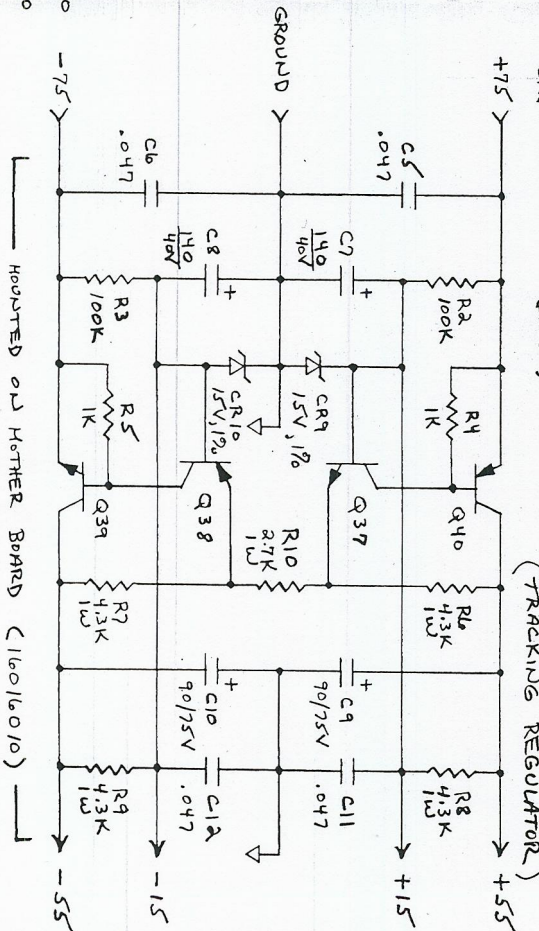 (TRACKING REGULATOR)
+75
+55
C5
.047
R2
100K
R4
1K
Q40
R6
4.3K
1W
R8
4.3K
1W
+15
C7
140
40V
+
CR9
15V, 1%
Q37
C9
90/75V
+
C11
.047
GROUND
R10
2.7K
1W
C6
.047
C8
140
40V
+
CR10
15V, 1%
Q38
C10
90/75V
+
C12
.047
-15
R3
100K
R5
1K
Q39
R7
4.3K
1W
R9
4.3K
1W
-75
-55
MOUNTED ON MOTHER BOARD (16016010)